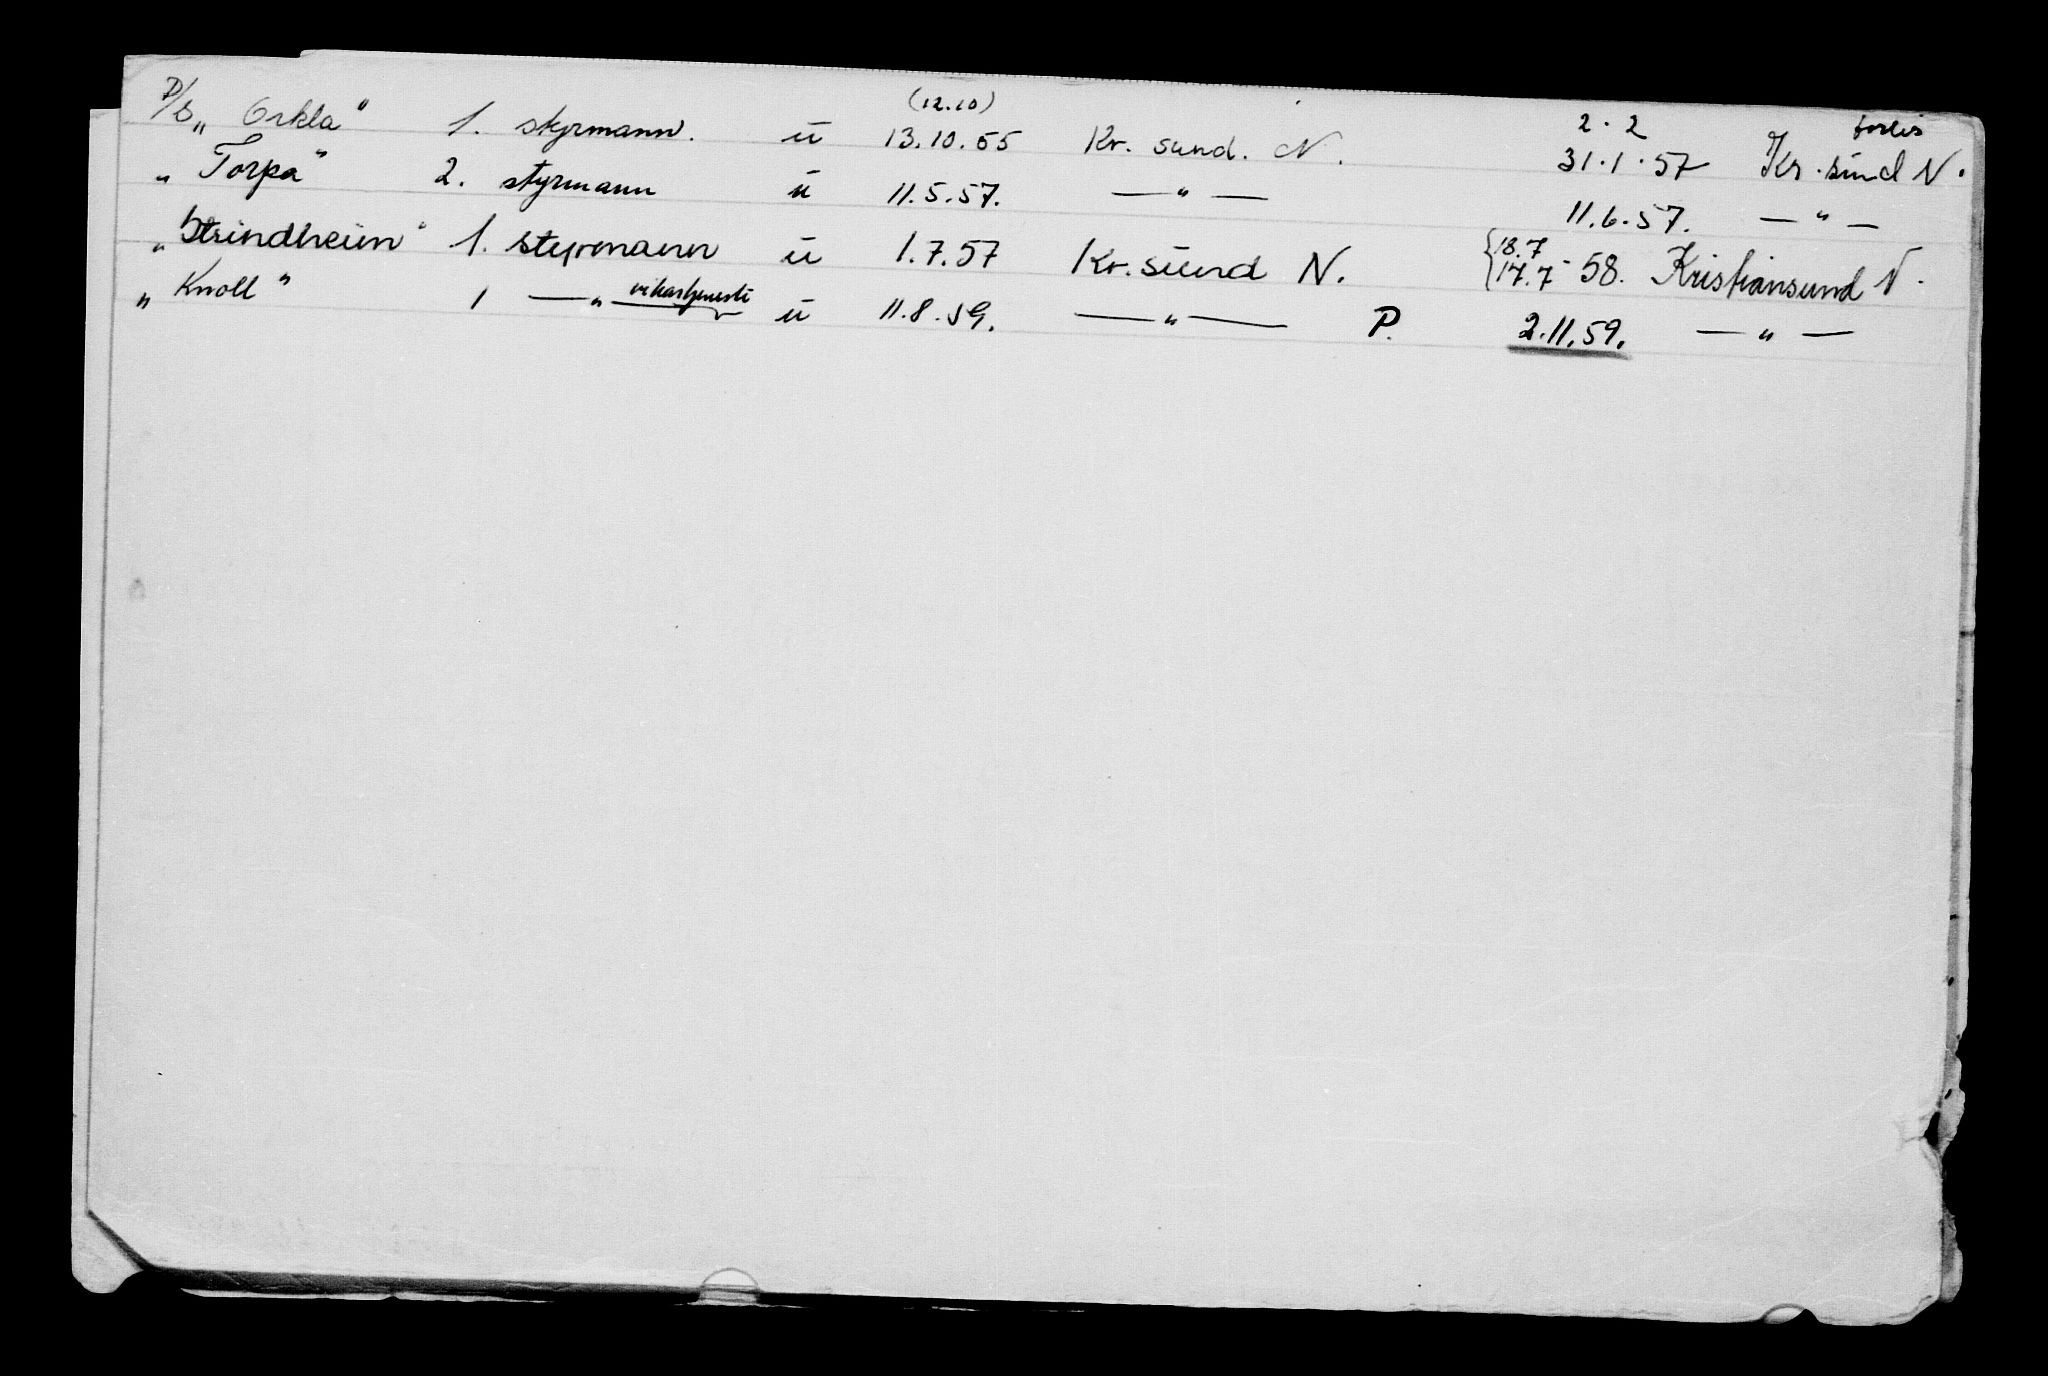 (12.10) 2.2 forlis
D/S „Orkla" 1. styrmann. ü 13.10.55 Kr. sund. N. 31.1.57 Kr. sund N.
„Torpa" 2. styrmann ü 11.5.57. —„— 11.6.57. —„—
„Strindheim" 1. styrmann ü 1.7.57 Kr. sund N. {18.7 17.7-58. Kristiansund N.
„Knoll" 1 —„— vikartjeneste ü 11.8.59. —„— P. 2.11.59. —„—